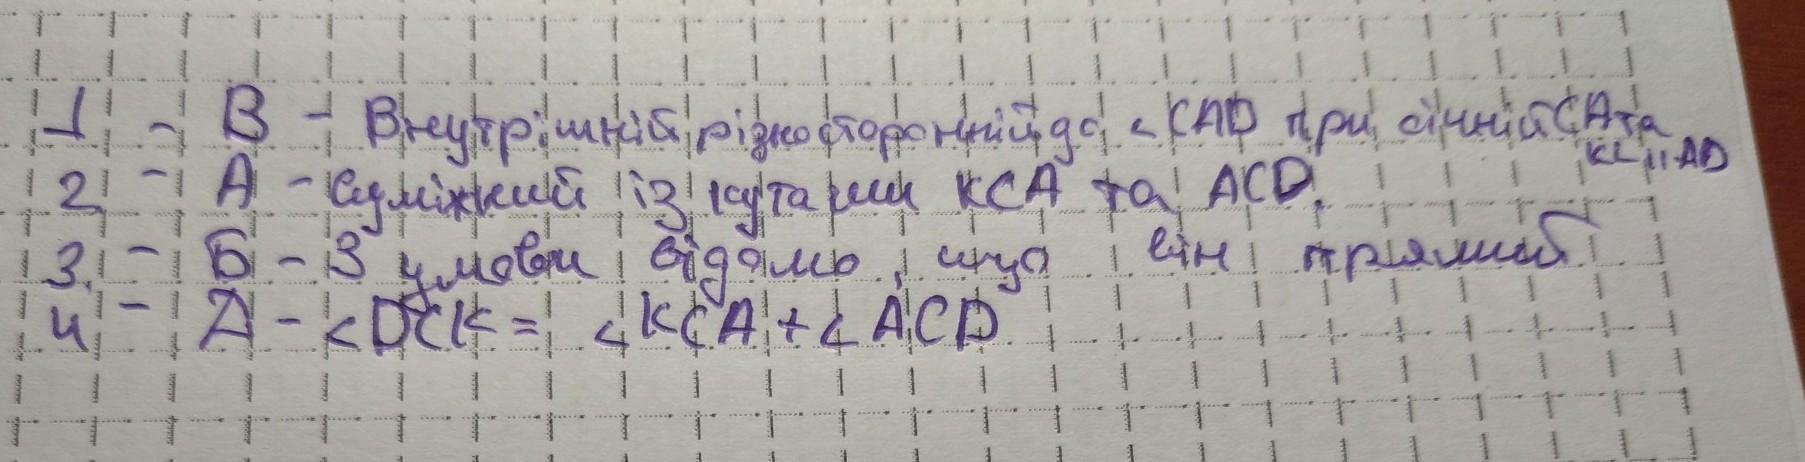 1 - В - Внутрішній різносторонній до <CAD при січній CA та
KL || AD
2 - А - Суміжний із кутами KCA та ACD.
3. - Б - З умови відомо, що він прямий
4 - Д - <DCK = <KCA + <ACD